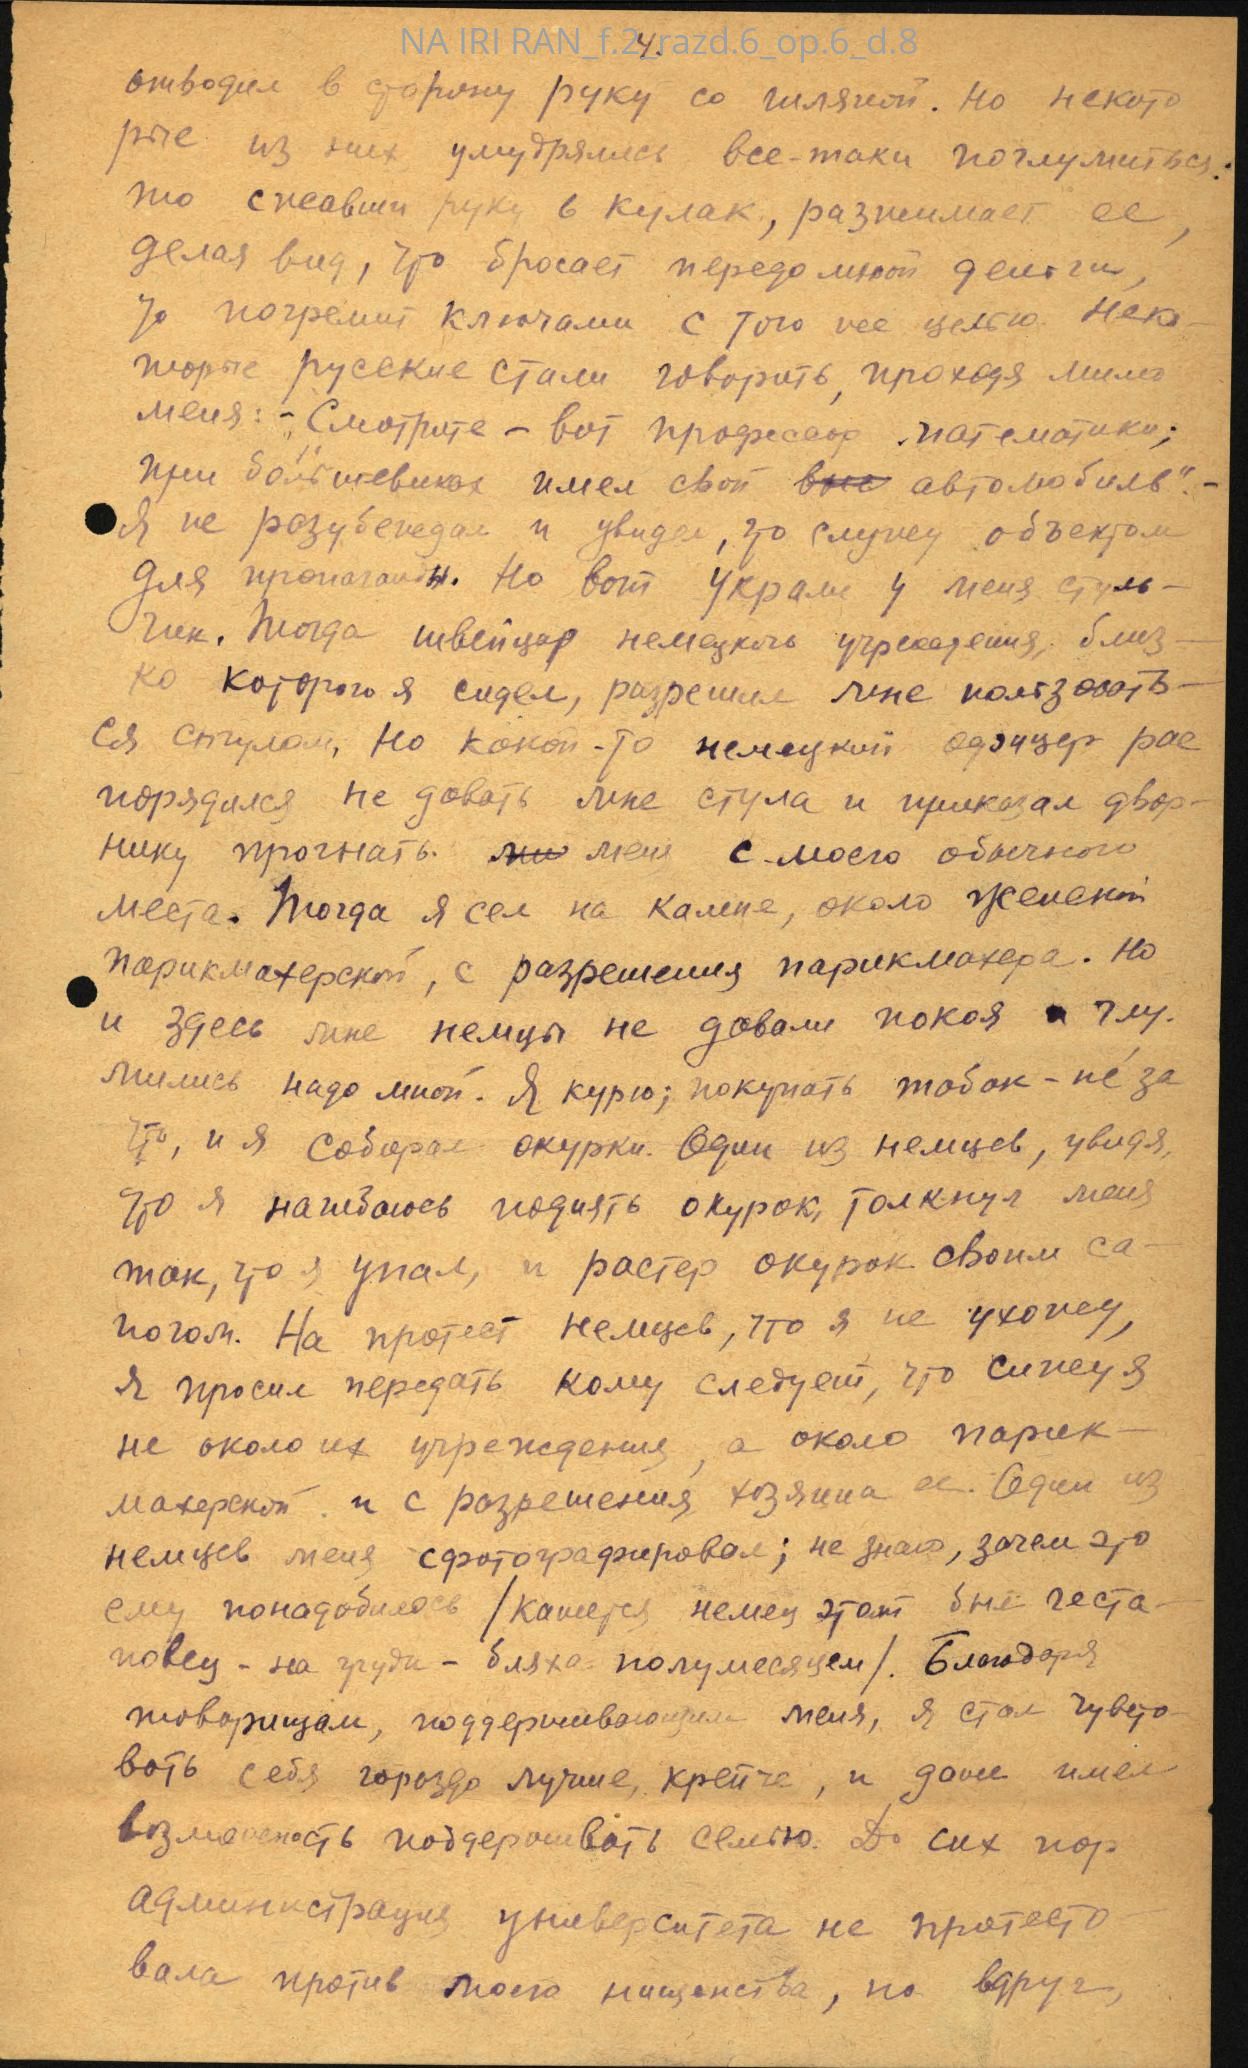 NA IRI RAN_f.2_razd.6_op.6_d.8
4.
отводил в сторону руку со шляпой. Но некото
рые из них умудрялись все-таки поглумиться:
то сжавши руку в кулак, разжимает ее,
делая вид, что бросает передо мной деньги,
то погремит ключами с той же целью. Неко-
торые русские стали говорить, проходя мимо
меня: - „Смотрите - вот профессор математики;
при большевиках имел свой автомобиль". -
Я не разубеждал и увидел, что служу объектом
для пропаганды. Но вот украли у меня стуль-
чик. Тогда швейцар немецкого учреждения, близ-
ко которого я сидел, разрешил мне пользовать-
ся стулом, Но какой-то немецкий офицер рас
порядился не давать мне стула и приказал двор-
нику прогнать меня с моего обычного
места. Тогда я сел на камне, около женской
парикмахерской, с разрешения парикмахера. Но
и здесь мне немцы не давали покоя и глу-
мились надо мной. Я курю; покупать табак - не́ за
что, и я собирал окурки. Один из немцев, увидя,
что я нагибаюсь поднять окурок, толкнул меня
так, что я упал, и растер окурок своим са-
погом. На протест немцев, что я не ухожу,
я просил передать кому следует, что сижу я
не около их учреждения, а около парик-
махерской и с разрешения хозяина ее. Один из
немцев меня сфотографировал; не знаю, зачем это
ему понадобилось /кажется немец этот был геста-
повец - на груди - бляха полумесяцем/. Благодаря
товарищам, поддерживающим меня, я стал чувство-
вать себя гораздо лучше, крепче, и даже имел
возможность поддерживать семью. До сих пор
администрация университета не протесто-
вала против моего нищенства, но вдруг,